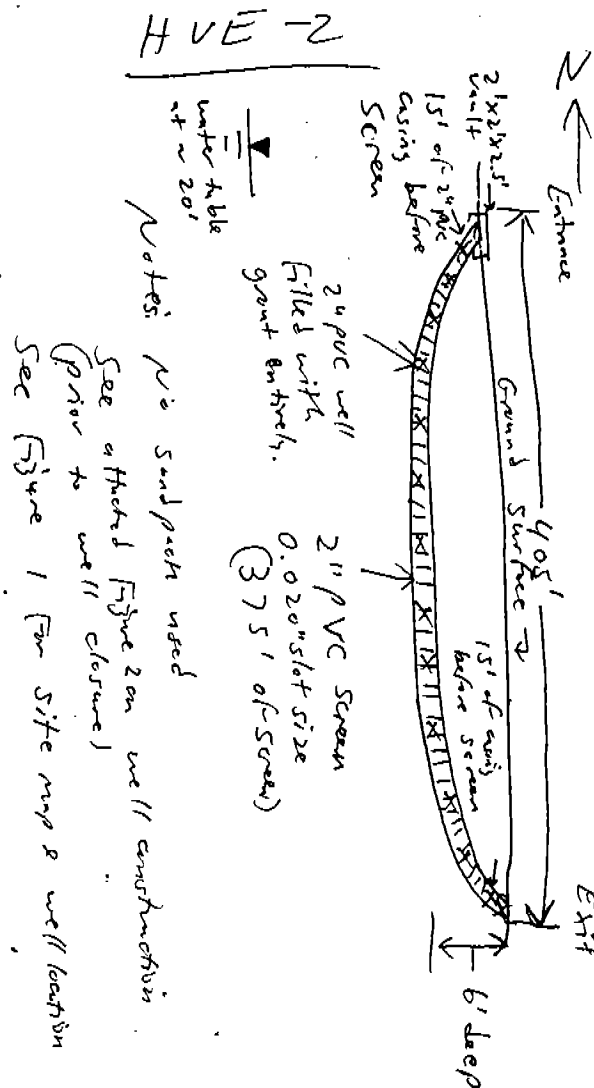 HVE-2
N
Entrance
Exit
2'x2'x2.5'
vault
15' of 2" PVC
casing before
screen
405'
Ground Surface
15' of casing
before screen
6' deep
water table
at ~ 20'
2" PVC well
filled with
grout entirely.
2" PVC Screen
0.020" slot size
(375' of screen)
Notes: No sand pack used
See attached Figure 2 on well construction
(prior to well closure)
See Figure 1 for site map & well location